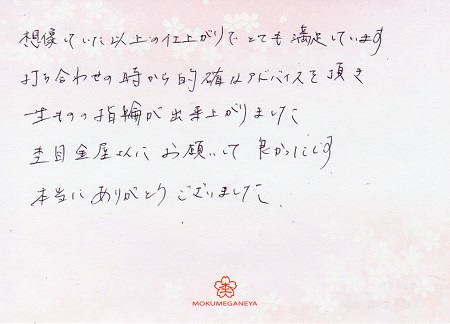 想像していた以上の仕上がりでとても満足しています
打ち合わせの時から的確なアドバイスを頂き
一生ものの指輪が出来上がりました
杢目金屋さんにお願いして良かったです
本当にありがとうございました
杢
MOKUMEGANEYA